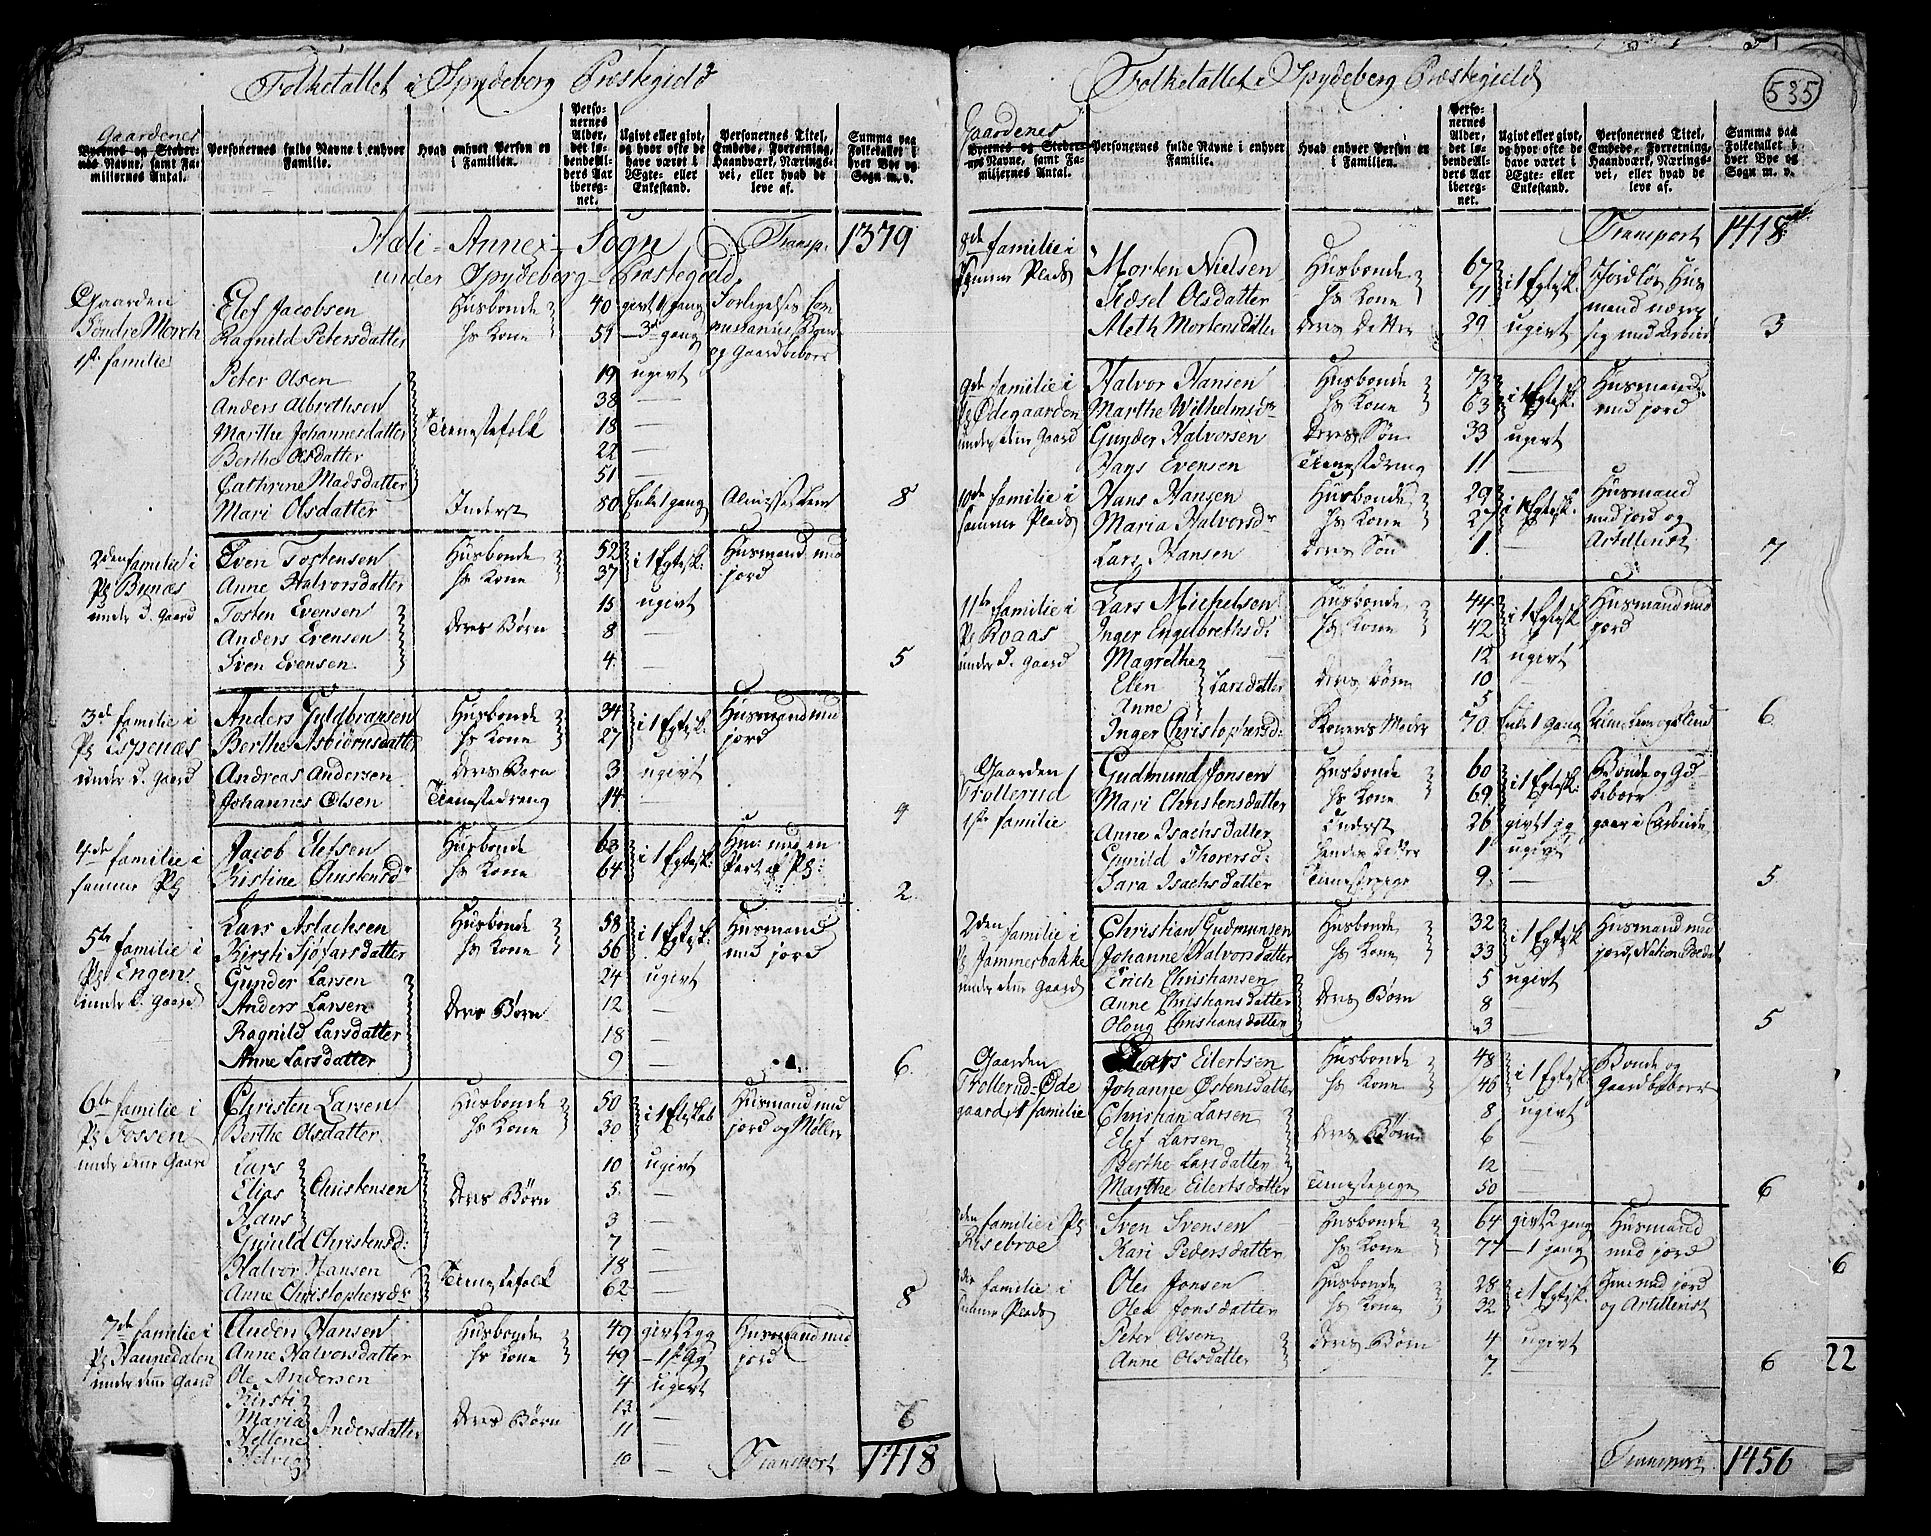 Folketallet i Spydeberg Præstegield
Gaardenes
Byernes og Stedernes Navne, samt Familiernes Antal.
Personernes fulde Navne i enhver Familie.
Hvad enhver Person er i Familien.
Personernes Alder, det løbende Alders Aar iberegnet.
Ugivt eller givt, og hvor ofte de have været i Ægte- eller Enkestand.
Personernes Titel, Embede, Forretning, Haandværk, Næringsvei, eller hvad de leve af.
Summa paa Folketallet i hver Bye og Sogn m. v.
Hæli-Annex-Sogn Transp. 1379
under Spydeberg Præstegield
Gaarden Elef Jacobsen Husbonde 40 givt 1 gang
Søndre Morch Ragnild Petersdatter Hs Kone 51 3de gang og Gaardbeboer
1ste familie
Peter Olsen 19 ugivt
Anders Albrethsen 38 —
Marthe Johannesdatter Tienestefolk 18 —
Berthe Olsdatter 22 —
Cathrine Madsdatter 51 —
Mari Olsdatter Inderst 80 Enke 1 gang Almisse Lem 8
2den familie i Even Tostensen Husbonde 52 i 1 Egtesk: Husmand med
Pl Bunæs Anne Halvorsdatter Hs Kone 37 jord
under d. Gaard Tosten Evensen 15 ugivt
Anders Evensen Deres Børn 8 —
Sven Evensen 4 — 5
3de familie i Anders Guldbransen Husbonde 34 i 1 Egtesk: Husmand med
Pl Espenæs Berthe Asbiørnsdatter Hs Kone 27 jord
under d. Gaard Andreas Andersen Deres Børn 3 ugivt
Johannes Olsen Tienestedreng 14 — 4
4de familie i Jacob Elefsen Husbonde 63 i 1 Egtesk: Hm: med en
samme Pl Kistine Christensdr Hs Kone 64 Part af Pl: 2
5te familie i Lars Aslachsen Husbonde 58 i 1 Egtesk: Husmand
Pl Engen Kirsti Sjøfarsdatter Hs Kone 56 med jord
under d. Gaard Gunder Larsen 24 ugivt
Anders Larsen Deres Børn 12 —
Ragnild Larsdatter 18 —
Anne Larsdatter 9 — 6
6te familie i Christen Larsen Husbonde 50 i 1 Egteskab Husmand med
Pl Fossen Berthe Olsdatter Hs Kone 30 jord og Møller
under denne Gaard Lars 10 ugivt
Elias Christensen Deres Børn 5 —
Hans 3 —
Gunild Christensd: 7 —
Halvor Hansen Tienestefolk 18 —
Anne Christophersdr 62 — 8
7de familie i Anden Hansen Husbonde 49 givt 2 gg Husmand med
Pl Haugedalen Anne Halvorsdatter Hs Kone 49 1ste Gg jord
under denne Gaard Ole Andersen 4 ugivt
Kirsti 13 —
Maria Andersdatter Deres Børn 11 —
Hellene
Helvig 10 — 7
Transport 1418
535
Folketallet i Spydeberg Præstegield
Gaardenes
Byernes og Stedernes Navne, samt Familiernes Antal.
Personernes fulde Navne i enhver Familie.
Hvad enhver Person er i Familien.
Personernes Alder, det løbende Alders Aar iberegnet.
Ugivt eller givt, og hvor ofte de have været i Ægte- eller Enkestand.
Personernes Titel, Embede, Forretning, Haandværk, Næringsvei, eller hvad de leve af.
Summa paa Folketallet i hver Bye og Sogn m. v.
Transport 1418
8de familie i Morten Nielsen Husbonde 67 i 1 Egtesk: Jordløs Hus
samme Plads Sidsel Olsdatter Hs Kone 71 mand nærer
Aleth Mortensdatter Deres Datter 29 ugivt sig med Arbeid 3
9de familie i Halvor Hansen Husbonde 73 i 1 Egtesk: Husmand
Pl Ødegaarden Marthe Wilhelmsdr Hs Kone 63 med jord
under denne Gaard Gunder Halvorsen Deres Søn 33 ugivt
Hans Evensen Tienestedreng 11 —
10de familie i Hans Hansen Husbonde 29 i 1 Egtesk: Husmand
samme Plads Maria Halvorsdr Hs Kone 27 med jord og
Lars Hansen Deres Søn 1 — Artillerist 7
11te familie i Lars Michelsen Husbonde 44 i 1 Egtesk: Husmand med
Pl Roaas Inger Engebrethsd: Hs Kone 42 jord
under d. Gaard Magrethe 12 ugivt
Elen Larsdatter Deres Børn 10
Anne 5
Inger Christophersd: Konens Moder 70 Enke 1 Gang 6
Gaarden Gudmund Jonsen Husbonde 60 i 1 Egtesk: Bonde og Gd
Trollerud Mari Christensdatter Hs Kone 69 beboer
1ste familie Anne Isachsdatter Inderst 26 givt 1 gg gaar i Arbeide
Gunild Thoresd: Hendes Datter 1 ugivt
Sara Isachsdatter Tienestepige 9 — 5
2den familie i Christian Gudmunsen Husbonde 32 i 1 Egtesk Husmand med
Pl Jammerbakke Johanne Halvorsdatter Hs Kone 33 jord, Nation. Soldat
under denne Gaard Erich Christiansen 5 ugivt
Anne Christiansdatter Deres Børn 8 —
Oloug Christiansdatter 3 — 5
Gaarden Lars Eilertsen Husbonde 48 i 1 Egtesk: Bonde og
Trollerud-Øde Johanne Østensdatter Hs Kone 46 Gaardbeboer
gaard 1 familie Christian Larsen 8 ugivt
Elef Larsen Deres Børn 6 —
Berthe Larsdatter 12 —
Marthe Eilertsdatter Tienestepige 50 — 6
2den familie i Pl Sven Svensen Husbonde 64 givt 2 gang Husmand
Risebroe Kari Pedersdatter Hs Kone 77 1 gang med jord
familie i Ole Jonsen Husbonde 28 i 1 Egtesk: Hm med jord
samme Plads Olea Jonsdatter Hs Kone 32 og Artillerist
Peter Olsen Deres Børn 4 ugivt
Anne Olsdatter 7 6
Transport 1456
6
22